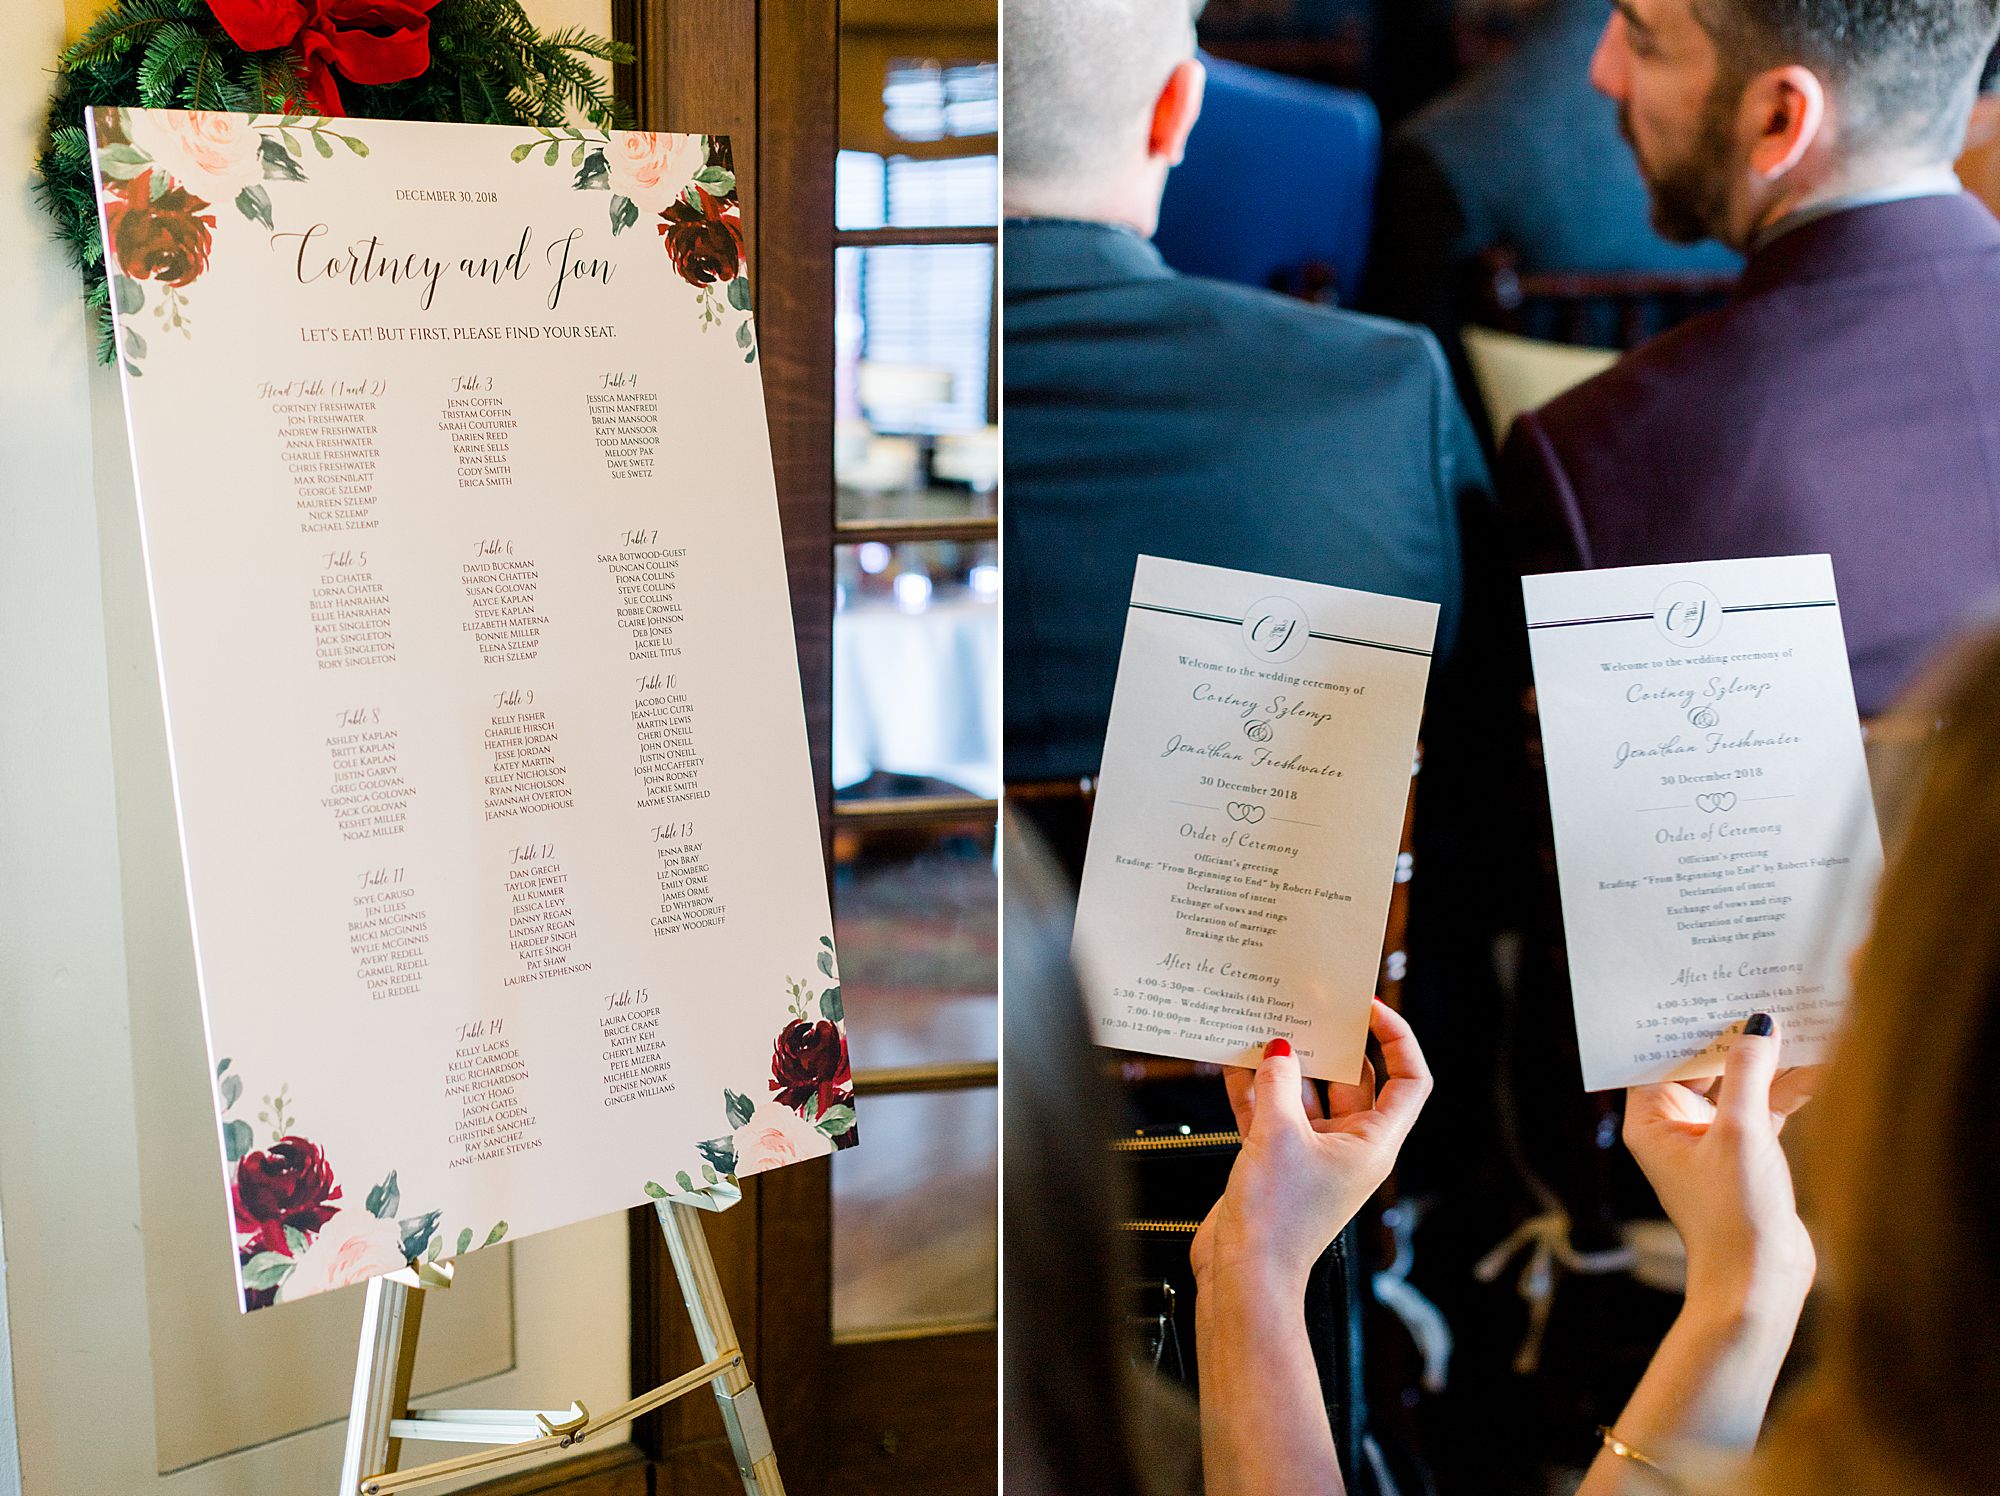 DECEMBER 30, 2018
Cortney and Jon
LET'S EAT! BUT FIRST, PLEASE FIND YOUR SEAT.
Head Table (1 and 2)
CORTNEY FRESHWATER
JON FRESHWATER
ANDREW FRESHWATER
ANNA FRESHWATER
CHARLIE FRESHWATER
CHRIS FRESHWATER
MAX ROSENBLATT
GEORGE SZLEMP
MAUREEN SZLEMP
NICK SZLEMP
RACHAEL SZLEMP
Table 3
JENN COFFIN
TRISTAM COFFIN
SARAH COUTURIER
DARIEN REED
KARINE SELLS
RYAN SELLS
CODY SMITH
ERICA SMITH
Table 4
JESSICA MANFREDI
JUSTIN MANFREDI
BRIAN MANSOOR
KATY MANSOOR
TODD MANSOOR
MELODY PAK
DAVE SWETZ
SUE SWETZ
Table 5
ED CHATER
LORNA CHATER
BILLY HANRAHAN
ELLIE HANRAHAN
KATE SINGLETON
JACK SINGLETON
OLLIE SINGLETON
RORY SINGLETON
Table 6
DAVID BUCKMAN
SHARON CHATTEN
SUSAN GOLOVAN
ALYCE KAPLAN
STEVE KAPLAN
ELIZABETH MATERNA
BONNIE MILLER
ELENA SZLEMP
RICH SZLEMP
Table 7
SARA BOTWOOD-GUEST
DUNCAN COLLINS
FIONA COLLINS
STEVE COLLINS
SUE COLLINS
ROBBIE CROWELL
CLAIRE JOHNSON
DEB JONES
JACKIE LU
DANIEL TITUS
Table 8
ASHLEY KAPLAN
BRITT KAPLAN
COLE KAPLAN
JUSTIN GARVY
GREG GOLOVAN
VERONICA GOLOVAN
ZACK GOLOVAN
KESHET MILLER
NOAZ MILLER
Table 9
KELLY FISHER
CHARLIE HIRSCH
HEATHER JORDAN
JESSE JORDAN
KATEY MARTIN
KELLEY NICHOLSON
RYAN NICHOLSON
SAVANNAH OVERTON
JEANNA WOODHOUSE
Table 10
JACOBO CHIU
JEAN-LUC CUTRI
MARTIN LEWIS
CHERI O'NEILL
JOHN O'NEILL
JUSTIN O'NEILL
JOSH MCCAFFERTY
JOHN RODNEY
JACKIE SMITH
MAYME STANSFIELD
Table 11
SKYE CARUSO
JEN LILES
BRIAN MCGINNIS
MICKI MCGINNIS
WYLIE MCGINNIS
AVERY REDELL
CARMEL REDELL
DAN REDELL
ELI REDELL
Table 12
DAN GRECH
TAYLOR JEWETT
ALI KUMMER
JESSICA LEVY
DANNY REGAN
LINDSAY REGAN
HARDEEP SINGH
KAITE SINGH
PAT SHAW
LAUREN STEPHENSON
Table 13
JENNA BRAY
JON BRAY
LIZ NOMBERG
EMILY ORME
JAMES ORME
ED WHYBROW
CARINA WOODRUFF
HENRY WOODRUFF
Table 14
KELLY LACKS
KELLY CARMODE
ERIC RICHARDSON
ANNE RICHARDSON
LUCY HOAG
JASON GATES
DANIELA OGDEN
CHRISTINE SANCHEZ
RAY SANCHEZ
ANNE-MARIE STEVENS
Table 15
LAURA COOPER
BRUCE CRANE
KATHY KEH
CHERYL MIZERA
PETE MIZERA
MICHELE MORRIS
DENISE NOVAK
GINGER WILLIAMS
C and J
Welcome to the wedding ceremony of
Cortney Szlemp
&
Jonathan Freshwater
30 December 2018
Order of Ceremony
Officiant's greeting
Reading: "From Beginning to End" by Robert Fulghum
Declaration of intent
Exchange of vows and rings
Declaration of marriage
Breaking the glass
After the Ceremony
4:00-5:30pm - Cocktails (4th Floor)
5:30-7:00pm - Wedding breakfast (3rd Floor)
7:00-10:00pm - Reception (4th Floor)
10:30-12:00pm - Pizza after party
C and J
Welcome to the wedding ceremony of
Cortney Szlemp
&
Jonathan Freshwater
30 December 2018
Order of Ceremony
Officiant's greeting
Reading: "From Beginning to End" by Robert Fulghum
Declaration of intent
Exchange of vows and rings
Declaration of marriage
Breaking the glass
After the Ceremony
4:00-5:30pm - Cocktails (4th Floor)
5:30-7:00pm - Wedding breakfast (3rd Floor)
7:00-10:00pm - (4th Floor)
10:30-12:00pm -